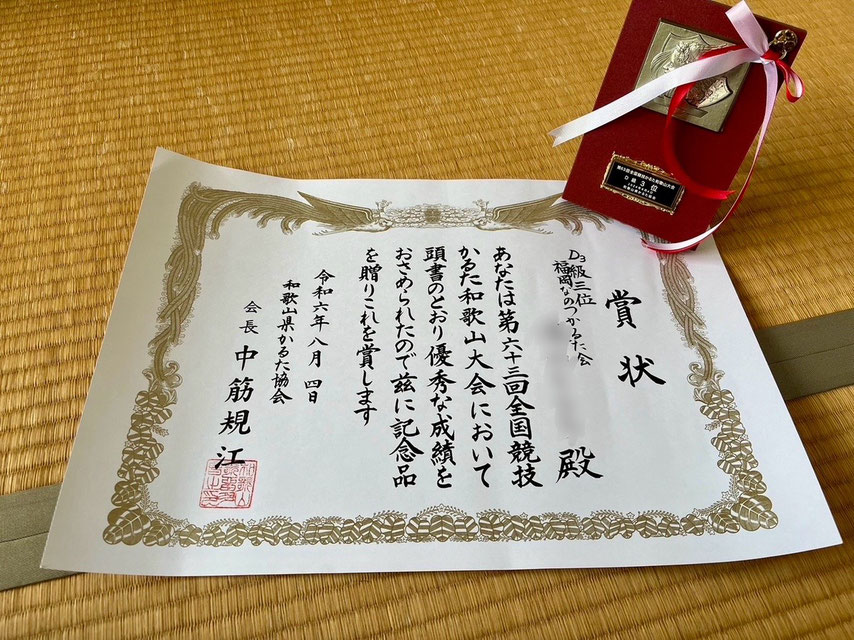 賞状
D3級三位
福岡なのつかるた会
殿
あなたは第六十三回全国競技
かるた和歌山大会において
頭書のとおり優秀な成績を
おさめられたので茲に記念品
を贈りこれを賞します
令和六年八月四日
和歌山県かるた協会
会長 中筋規江
第63回全国競技かるた和歌山大会
D級3位